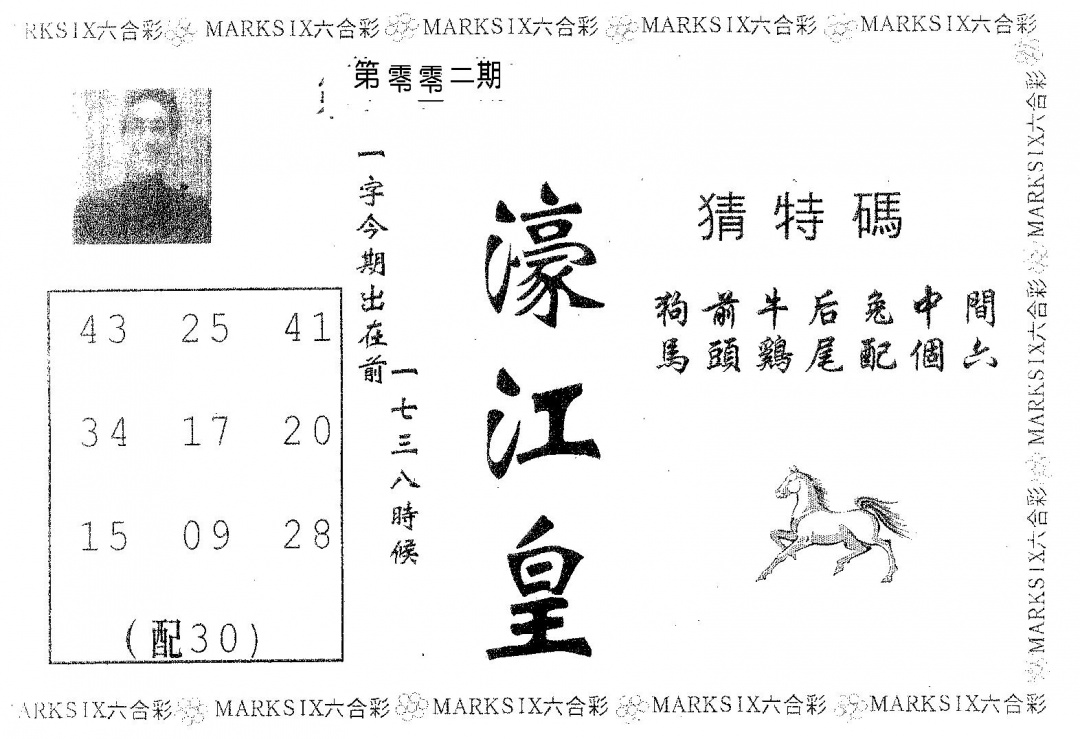 RKSIX六合彩 MARKSIX六合彩 MARKSIX六合彩 MARKSIX六合彩 MARKSIX六合彩
第零零二期
一字今期出在前
一七三八時候
濠江皇
猜特碼
狗前牛后兔中間
馬頭鷄尾配個六
43 25 41
34 17 20
15 09 28
(配30)
MARKSIX六合彩 MARKSIX六合彩 MARKSIX六合彩
ARKSIX六合彩 MARKSIX六合彩 MARKSIX六合彩 MARKSIX六合彩 MARKSIX六合彩